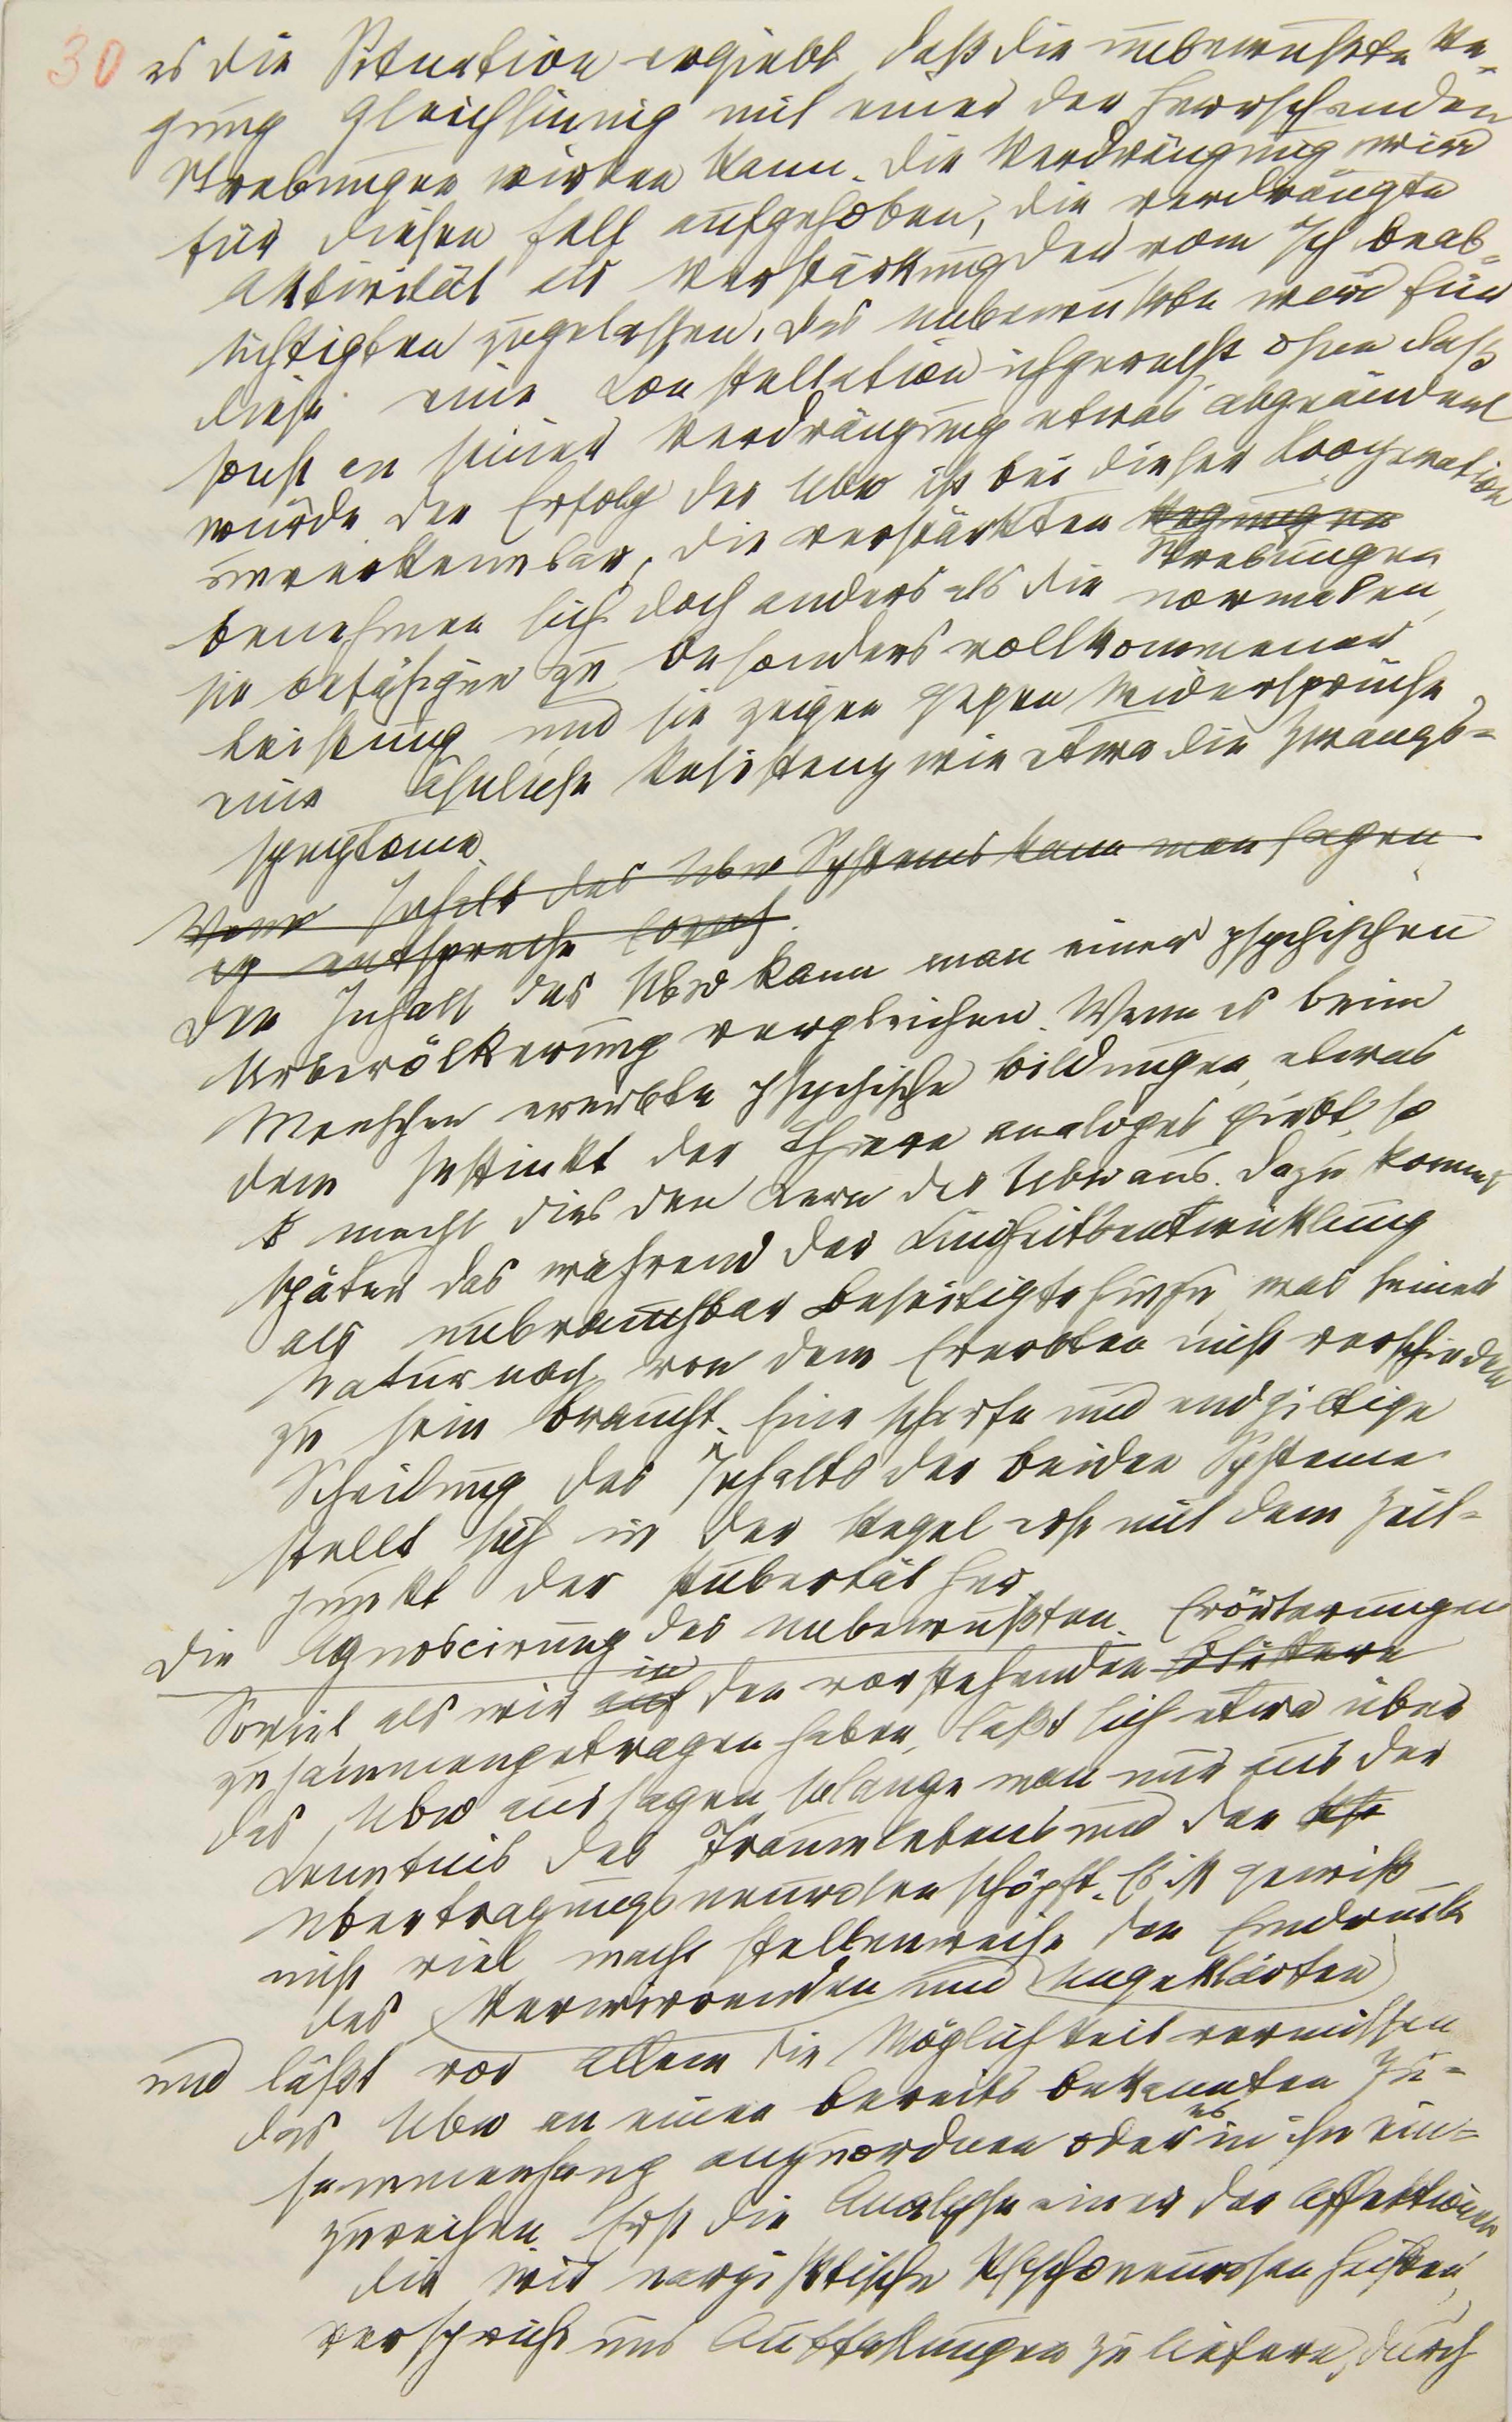 30
es die Situation ergiebt, daß die unbewußte Re-
gung gleichsinnig mit einer der herrschenden
Strebungen wirken kann. Die Verdrängung wird
für diesen Fall aufgehoben, die verdrängte
Aktivität als Verstärkung der vom Ich beab-
sichtigten zugelassen. Das unbewußte wird für
diese eine Konstellation ichgerecht ohne daß
sonst an seiner Verdrängung etwas abgeändert
würde. Der Erfolg des Ubw ist bei dieser Kooperation
unverkennbar, die verstärkten Regungen
Strebungen
benehmen sich doch anders als die normalen,
sie befähigen zu besonders vollkommener
Leistung und sie zeigen gegen Widersprüche
eine ähnliche Resistenz wie etwa die Zwangs-
symptome.
Inhalt des Ubw Systems kann man sagen
entspreche
Den Inhalt des Ubw kann man einer psychischen
Urbevölkerung vergleichen. Wenn es beim
Menschen ererbte psychische Bildungen, etwas
dem Instinkt der Thiere analoges giebt, so
macht dies den Kern des Ubw aus. Dazu kommt
später das während der Kindheitsentwicklung
als unbrauchbar Beseitigte hinzu, was seiner
Natur nach von dem Ererbten nicht verschieden
zu sein braucht. Eine scharfe und endgiltige
Scheidung des Inhalts der beiden Systeme
stellt sich in der Regel erst mit dem Zeit-
punkt der Pubertät her.
Die Agnoscirung des unbewußten. Erörterungen
Soviel als wir auf in den vorstehenden Blättern
zusammengetragen haben, läßt sich etwa über
das Ubw aussagen solange man nur aus der
Kenntnis des Traumlebens und der
Übertragungsneurosen schöpft. Es ist gewiß
nicht viel, macht stellenweise den Eindruck
des Verwirrenden und Ungeklärten
und läßt vor allem die Möglichkeit vermissen
das Ubw an einen bereits bekannten Zu-
sammenhang anzuordnen oder es in ihn ein-
zureihen. Erst die Analyse einer der Affektionen,
die wir narzißtische Psychoneurosen heißen,
verspricht uns Auffassungen zu liefern, durch